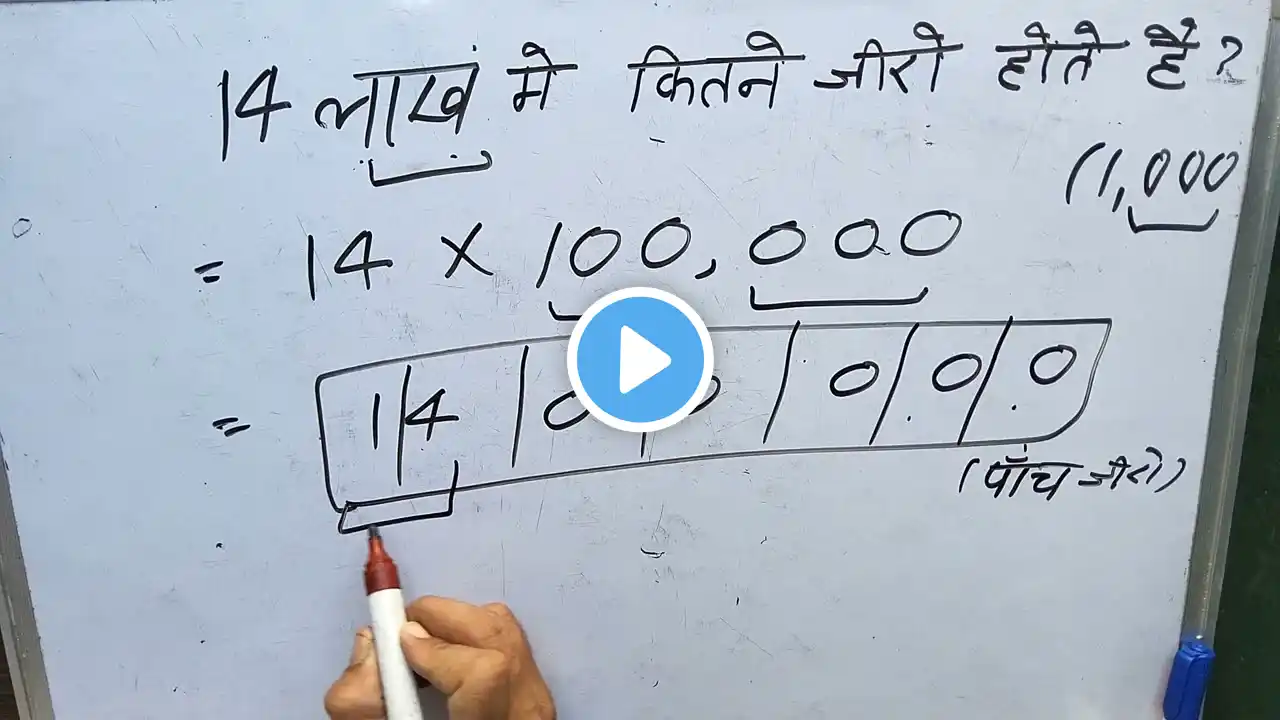 14 लाख में कितने जीरो होते है?
(1,000
= 14 × 100,000
= 14 00 000
(पाँच जीरो)